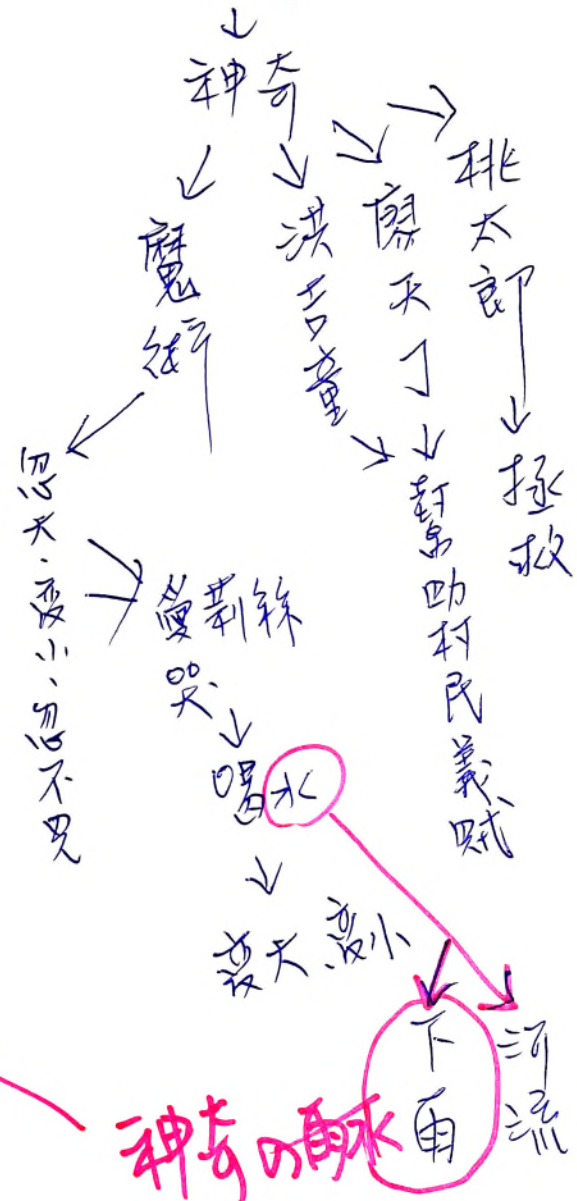 神奇
魔術
洪吉童
廖天丁
桃太郎
拯救
幫助村民義賊
忽大、变小、忽不見
愛莉絲
哭
喝水
变大、变小
下雨
河流
神奇の雨水